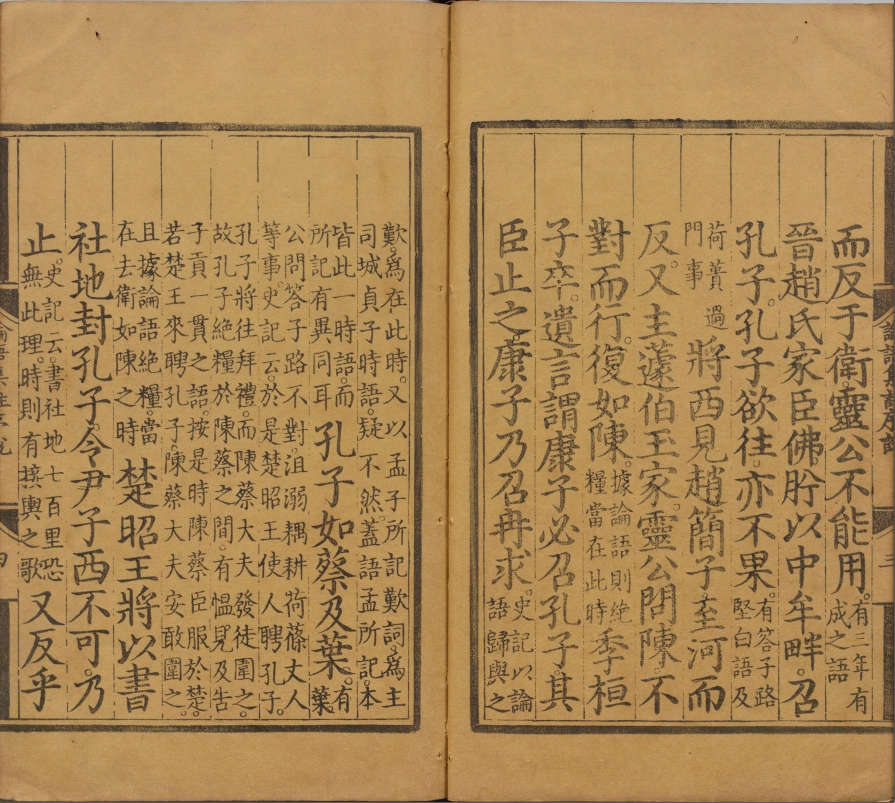 而反于衛靈公不能用。有三年有成之語
晉趙氏家臣佛肸以中牟畔。召
孔子。孔子欲往。亦不果。有答子路堅白語及
荷蕢過門事將西見趙簡子至河而
反。又主蘧伯玉家。靈公問陳。不
對而行。復如陳。據論語則絶糧當在此時季桓
子卒。遺言謂康子必召孔子。其
臣止之。康子乃召冉求。史記以論語歸與之
歎。爲在此時。又以孟子所記歎詞。爲主
司城貞子時語。疑不然。蓋語孟所記。本
皆此一時語。而所記有異同耳孔子如蔡及葉。有葉
公問答子路不對。沮溺耦耕荷蓧丈人
等事。史記云。於是楚昭王使人聘孔子。
孔子將往拜禮。而陳蔡大夫發徒圍之。
故孔子絶糧於陳蔡之間。有慍見及告
子貢一貫之語。按是時陳蔡臣服於楚。
若楚王來聘孔子。陳蔡大夫安敢圍之。
且據論語絶糧。當在去衛如陳之時楚昭王將以書
社地封孔子。令尹子西不可。乃
止。史記云。書社地七百里。恐無此理。時則有接輿之歌又反乎
論語集註序說 四